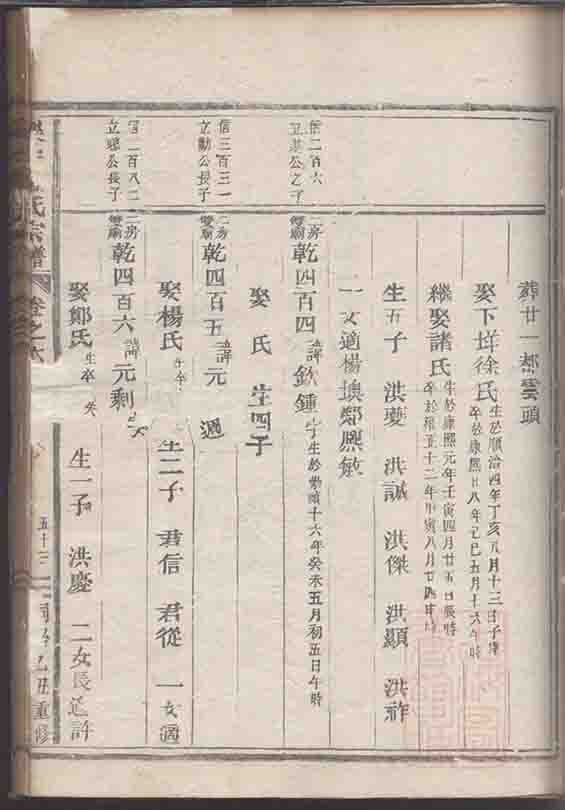 葬廿一都雲頭
娶下垟徐氏 生於順治四年丁亥八月十三日子時 卒於康熙廿八年己巳五月十六午時
繼娶諸氏 生於康熙元年壬寅四月廿五日辰時 卒於雍正十二年甲寅八月廿四申時
生五子 洪夔 洪誠 洪傑 洪顯 洪祚
一女適楊墺鄭熙敏
信二百六
二房雙廟乾四百四諱欽鍾字 生於崇禎十六年癸未五月初五日午時
娶 氏 生四子
信三百三一
立勳公長子
二房雙廟乾四百五諱元 週
娶楊氏 生卒 生二子 君信 君從 一女適
信一百八二
立 公長子
二房雙廟乾四百六諱元剩
娶鄭氏 生卒失 生一子 洪慶 二女長適許
氏宗譜 卷之六 五十三 乙丑重修